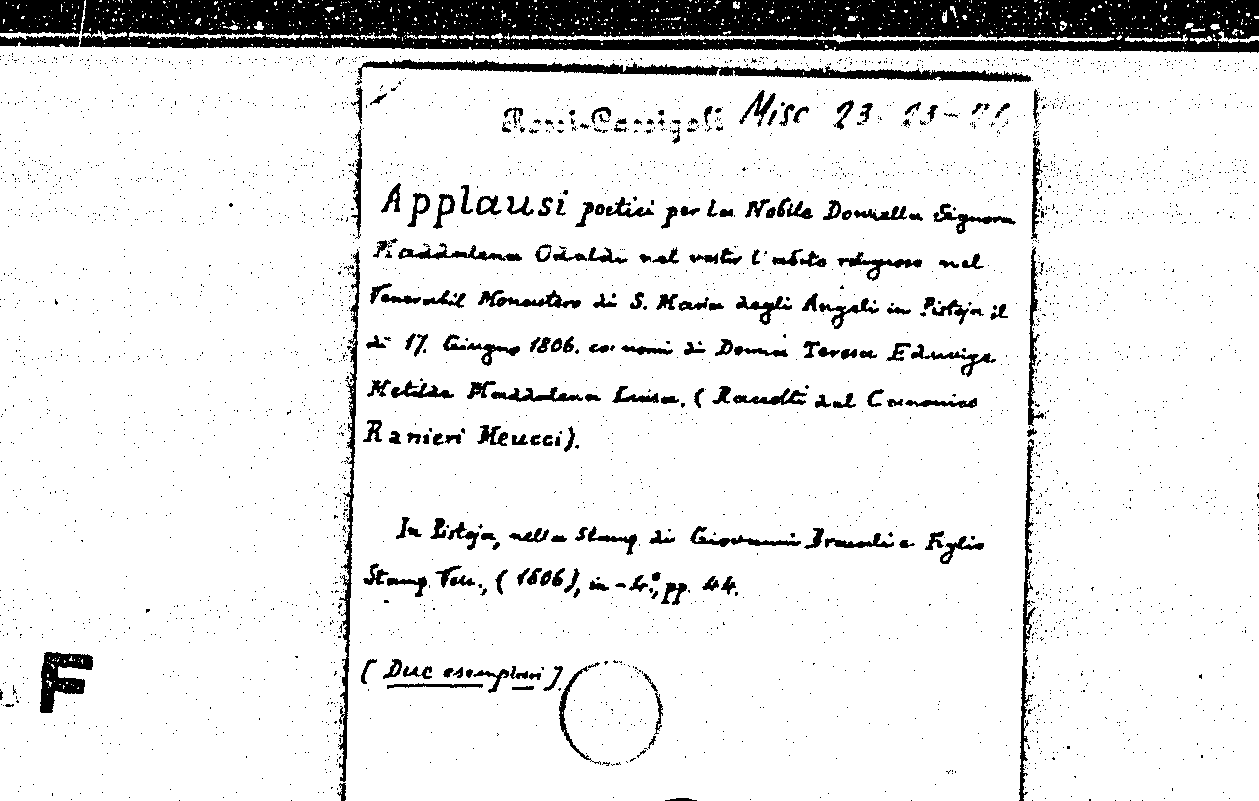 Rossi-Cassigoli Misc 23. 23-26
Applausi poetici per la Nobile Donzella Signora
Maddalena Odaldi nel vestir l'abito religioso nel
Venerabil Monastero di S. Maria degli Angeli in Pistoja il
di 17. Giugno 1806. co' nomi di Donna Teresa Eduvige
Metilde Maddalena Luisa. (Raccolti dal Canonico
Ranieri Meucci).
In Pistoja, nella Stamp. di Giovanni Bracali e Figlio
Stamp. Vesc., (1806), in-4.°, pp. 44.
[Due esemplari]
F